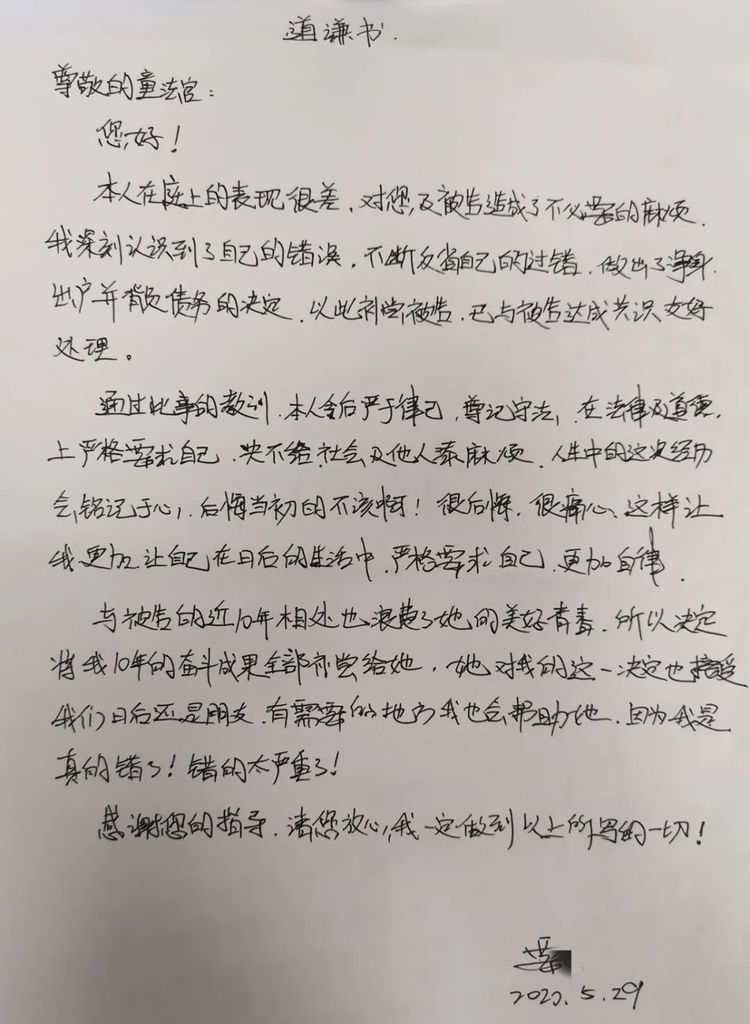 道谦书.
尊敬的童法官：
您好！
本人在庭上的表现很差，对您及被告造成了不必要的麻烦，
我深刻认识到了自己的错误，不断反省自己的过错，做出了净身
出户并背负债务的决定，以此补尝被告，已与被告达成共识友好
处理。
通过此事的教训，本人今后严于律己，尊记守法，在法律及道德
上严格要求自己，决不给社会及他人添麻烦，人生中的这次经历
会铭记于心，后悔当初的不该啊！很后悔，很痛心、这样让
我更加让自己在日后的生活中，严格要求自己，更加自律，
与被告的近10年相处也浪费了她的美好青春，所以决定
将我10年的奋斗成果全部补尝给她，她对我的这一决定也接受
我们日后还是朋友，有需要的地方我也会帮助她，因为我是
真的错了！错的太严重了！
感谢您的指导，请您放心，我一定做到以上所写的一切！
2020.5.29